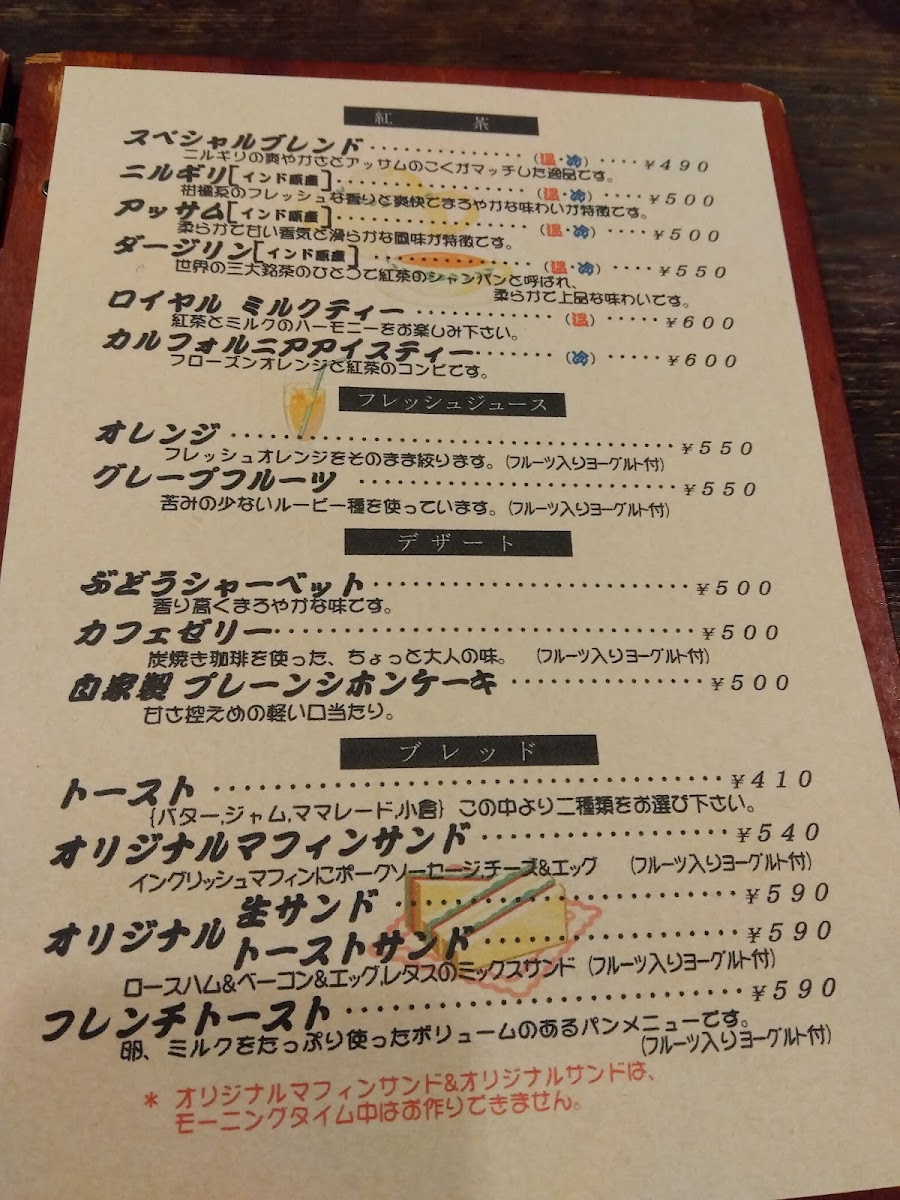 紅 茶
スペシャルブレンド・・・・・・・・・・・・・・(温・冷)・・・・¥490
ニルギリの爽やかさとアッサムのこくがマッチした逸品です。
ニルギリ[インド原産]・・・・・・・・・・・・・・(温・冷)・・・・¥500
柑橘系のフレッシュな香りと爽快でまろやかな味わいが特徴です。
アッサム[インド原産]・・・・・・・・・・・・・・(温・冷)・・・・¥500
柔らかで甘い香気と滑らかな風味が特徴です。
ダージリン[インド原産]・・・・・・・・・・・・・(温・冷)・・・・¥550
世界の三大銘茶のひとつで紅茶のシャンパンと呼ばれ、
柔らかで上品な味わいです。
ロイヤル ミルクティー・・・・・・・・・・・(温)・・・・・¥600
紅茶とミルクのハーモニーをお楽しみ下さい。
カルフォルニアアイスティー・・・・・・(冷)・・・・・¥600
フローズンオレンジと紅茶のコンビです。
フレッシュジュース
オレンジ・・・・・・・・・・・・・・・・・・・・・・・・・・・・・・・・・・¥550
フレッシュオレンジをそのまま絞ります。(フルーツ入りヨーグルト付)
グレープフルーツ・・・・・・・・・・・・・・・・・・・・・・・・・・¥550
苦みの少ないルービー種を使っています。(フルーツ入りヨーグルト付)
デザート
ぶどうシャーベット・・・・・・・・・・・・・・・・・・・・・・・・・¥500
香り高くまろやかな味です。
カフェゼリー・・・・・・・・・・・・・・・・・・・・・・・・・・・・・・・¥500
炭焼き珈琲を使った、ちょっと大人の味。 (フルーツ入りヨーグルト付)
自家製 プレーンシホンケーキ・・・・・・・・・・・・・・・¥500
甘さ控えめの軽い口当たり。
ブレッド
トースト・・・・・・・・・・・・・・・・・・・・・・・・・・・・・・・・・・・¥410
{バター,ジャム,ママレード,小倉} この中より二種類をお選び下さい。
オリジナルマフィンサンド・・・・・・・・・・・・・・・・・¥540
イングリッシュマフィンにポークソーセージ,チーズ&エッグ (フルーツ入りヨーグルト付)
オリジナル 生サンド・・・・・・・・・・・・・・・・・・・・・・・¥590
トーストサンド・・・・・・・・・・・・・・・・・¥590
ロースハム&ベーコン&エッグ,レタスのミックスサンド (フルーツ入りヨーグルト付)
フレンチトースト・・・・・・・・・・・・・・・・・・・・・・・・・・・¥590
卵、ミルクをたっぷり使ったボリュームのあるパンメニューです。
(フルーツ入りヨーグルト付)
* オリジナルマフィンサンド&オリジナルサンドは、
モーニングタイム中はお作りできません。